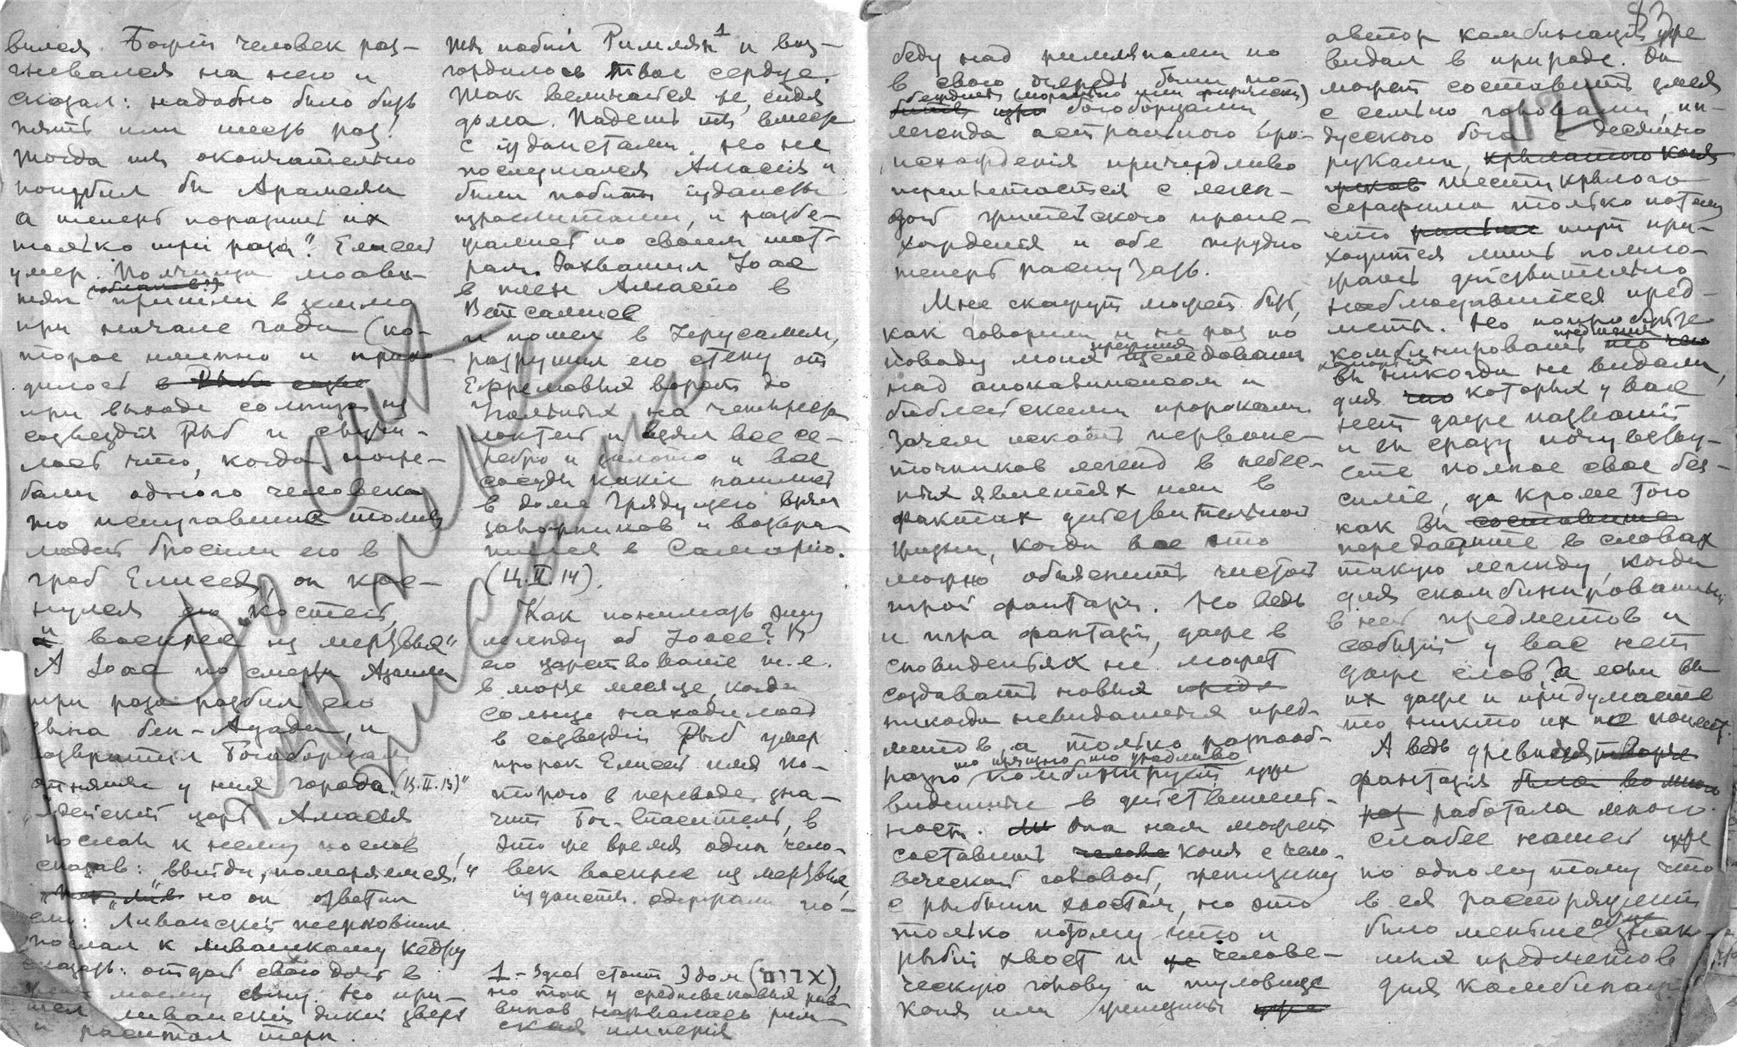 вился. Божій человек раз-
гневался на него и
сказал: надобно было бить
пять или шесть раз!
тогда ты окончательно
погубил бы Арамеян
а теперь поразишь их
только три раза". Елисей
умер. Полчища моави-
тян пришли в землю
при начале года (ко-
торое именно и прихо-
дилось в Рыб
при выходе солнца из
созвездія Рыб и случи-
лось что, когда погре-
бали одного человека
то испугавшись толпы
людей бросили его в
гроб Елисея, он кос-
нулся его костей,
и воскрес из мертвых"
А Іоас по смерти Азаила
три раза разбил его
сына бен-Адада, и
возвратил Богоборцам
отнятые у них города (Ц.II.13)"
"Іудейскій царь Амасія
послал к нему послов
сказав: выйди, померяемся!"
но он ответил
ему: Ливанскій терновник
послал к ливанскому кедру
сказать: отдай свою дочь в
моему сыну. Но при-
шел ливанскій дикій зверь
и растоптал терн.
ты побил Римлян¹ и воз-
гордилось твое сердце.
Так величайся же, сидя
дома. Падешь ты вместе
с іудаистами. Но не
послушался Амасія и
были побиты іудаисты
израелитами, и разбе-
жались по своим шат-
рам. Захватил Іоас
в плен Амасію в
Бет
и пошел в Іерусалим,
разрушил его стену от
Ефремовых ворот до
Угольных на четыреста
локтей и взял все се-
ребро и золото и все
сосуды какіе нашлись
в доме Грядущего взял
заложников и возвра-
тился в Самарію.
(Ц.II.14).
Как понимать эту
легенду об Іоасе? В
его царствованіе т.е.
в марте месяце, когда
солнце находилось
в созвездіи Рыб умер
пророк Елисей имя ко-
торого в переводе зна-
чит Бог-Спаситель, в
это же время один чело-
век воскрес из мертвых,
іудаисты одержали по-
1 - Здесь стоит Эдом (אדום),
но так у средневековых рав-
винов называлась рим-
ская имперія
83
беду над римлянами но
в свою очередь были по-
беждены (морально или физически)
богоборцами
легенда астрального про-
исхожденія причудливо
переплетается с леген-
дой житейского проис-
хожденія и обе трудно
теперь распутать.
Мне скажут может быть,
как говорили и не раз по
поводу моих прежних изследованій
над апокалипсисом и
библейскими пророками.
Зачем искать первоис-
точников легенд в небес-
ных явленіях или в
фактах действительной
жизни, когда все это
можно объяснить чистой
игрой фантазіи. Но ведь
и игра фантазіи, даже в
сновиденіях не может
создавать новых
никогда невиданных пред-
метов, а только разнооб-
разно комбинирует уже
виденные в действитель-
ности. Она нам может
составить челове коня с чело-
веческой головой, женщину
с рыбьим хвостом, но это
только потому что и
рыбій хвост и же челове-
ческую голову и туловище
коня или женщины уже
автор комбинаціи уже
видал в природе. Он
может составить змея
с семью головами, ин-
дусского бога с десятью
руками, крылатого коня
шестикрылого
серафима только потому
что тут при-
ходится лишь помно-
жать действительно
наблюдавшіеся пред-
меты. Но попробуйте
комбинировать предметы то чего
которых вы никогда не видали,
для что которых у вас
нет даже названій
и вы сразу почувству-
ете полное свое без-
силіе, да кроме того
как вы составите
передадите в словах
такую легенду, когда
для скомбинированных
в ней предметов и
событій у вас нет
даже слов, а если вы
их даже и придумаете
то никто их не поймет.
А ведь древняя
фантазія была во много
раз работала много
слабее нашей уже
по одному тому что
в ея распоряженіи
было меньше знако-
мых предметов
для комбинацій